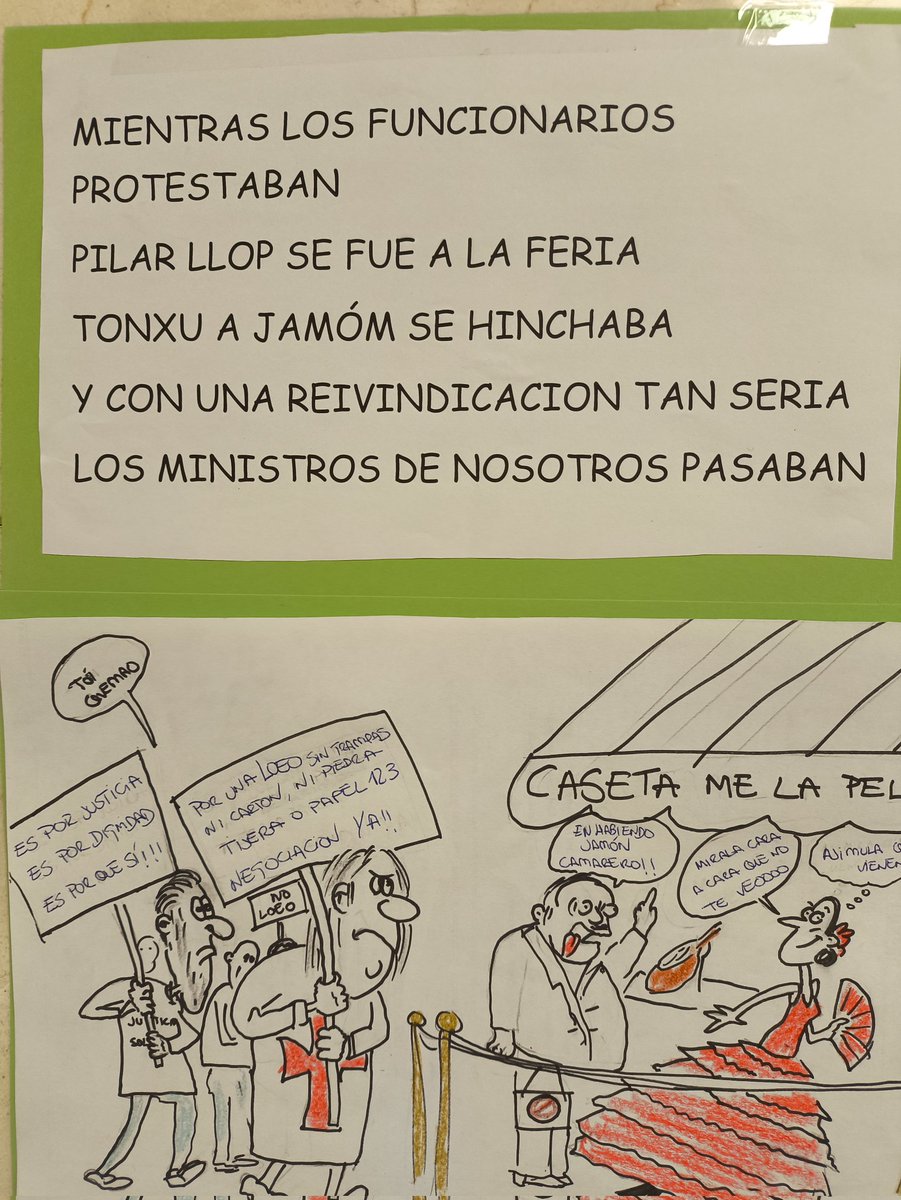 MIENTRAS LOS FUNCIONARIOS
PROTESTABAN
PILAR LLOP SE FUE A LA FERIA
TONXU A JAMÓM SE HINCHABA
Y CON UNA REIVINDICACION TAN SERIA
LOS MINISTROS DE NOSOTROS PASABAN
TOI
QUEMAO
ES POR JUSTICIA
ES POR DIGNIDAD
ES PORQUE SÍ!!!
POR UNA LOEO SIN TRAMPAS
NI CARTON, NI PIEDRA
TIJERA O PAPEL 123
NEGOCIACION YA!!
NO
LOEO
JUSTICIA
CASETA ME LA PEL
EN HABIENDO
JAMÓN
CAMARERO!!
MIRALA CARA
A CARA QUE NO
TE VEOOOO
AJIMULA Q
VIENEN